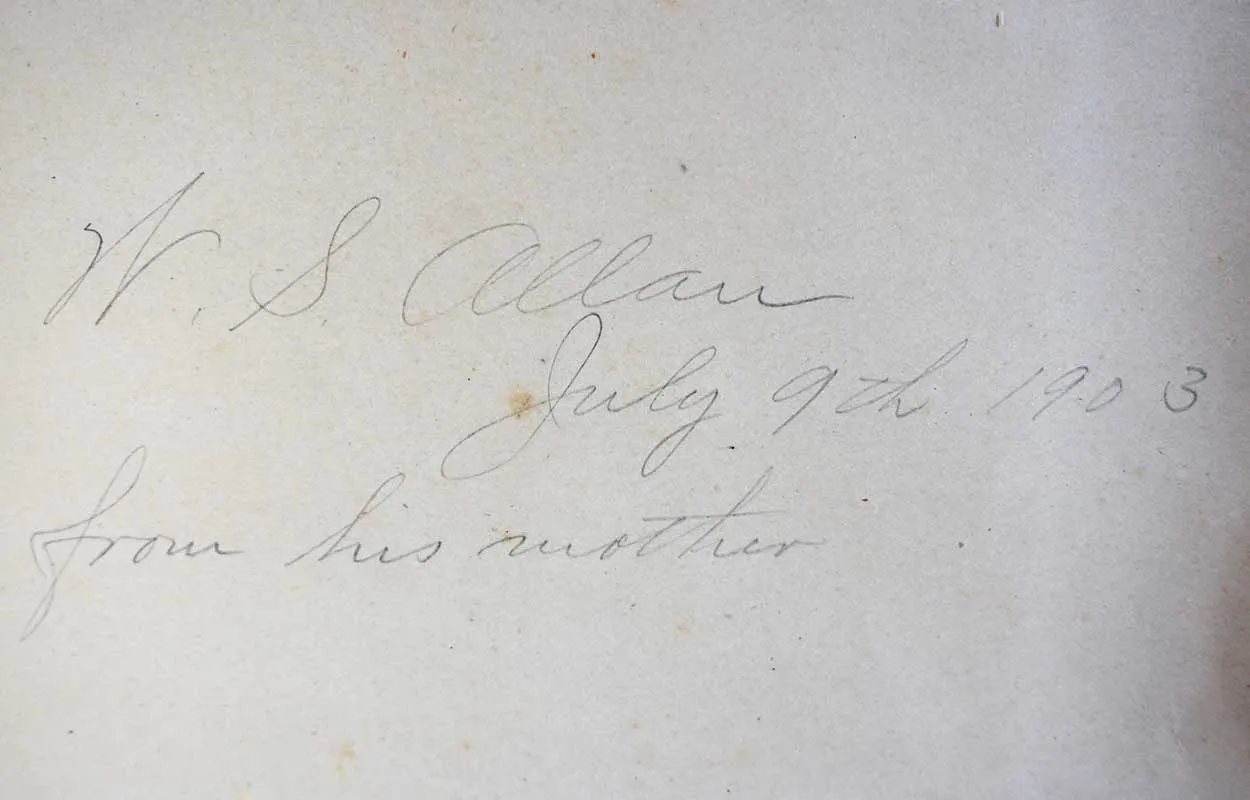 W. S. Allan
July 9th 1903
from his mother